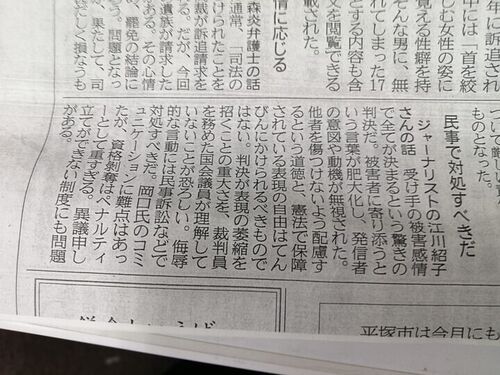 年に訴追され
中には「首を絞
しむ女性の姿に
覚える性癖を持
そんな男に、無
れてしまった17
とする内容も含
文を閲覧できる
載された。
情に応じる
森炎弁護士の話
通常、「司法の
けられたことを
裁が訴追請求を
だが、今回
遺族が請求した
ある。その心情
、罷免の結論に
。問題となっ
、果たして、司
しく損なうも
ものとなった。
民事で対処すべきだ
ジャーナリストの江川紹子
さんの話 受け手の被害感情
で全てが決まるという驚きの
判決だ。被害者に寄り添うと
いう言葉が肥大化し、発信者
の意図や動機が無視された。
他者を傷つけないよう配慮す
るという道徳と、憲法で保障
されている表現の自由はてん
びんにかけられるべきもので
はない。判決が表現の萎縮を
招くことの重大さを、裁判員
を務めた国会議員が理解して
いないことが恐ろしい。侮辱
的な言動には民事訴訟などで
対処すべきだ。岡口氏のコミ
ュニケーションに難点はあっ
たが、資格剝奪はペナルティ
ーとして重すぎる。異議申し
立てができない制度にも問題
がある。
平塚市は今月にも